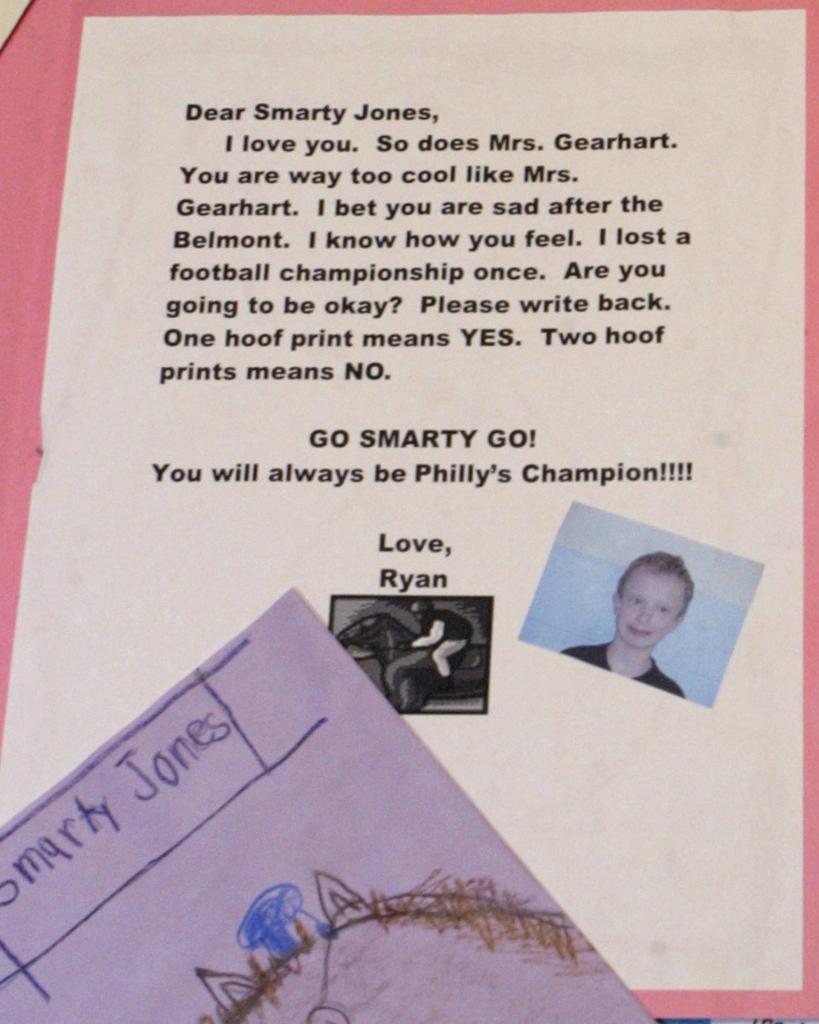 Dear Smarty Jones,
I love you. So does Mrs. Gearhart.
You are way too cool like Mrs.
Gearhart. I bet you are sad after the
Belmont. I know how you feel. I lost a
football championship once. Are you
going to be okay? Please write back.
One hoof print means YES. Two hoof
prints means NO.
GO SMARTY GO!
You will always be Philly's Champion!!!!
Love,
Ryan
Smarty Jones